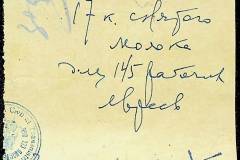 17 к. снятого
молока
для 145 рабочих
евреев